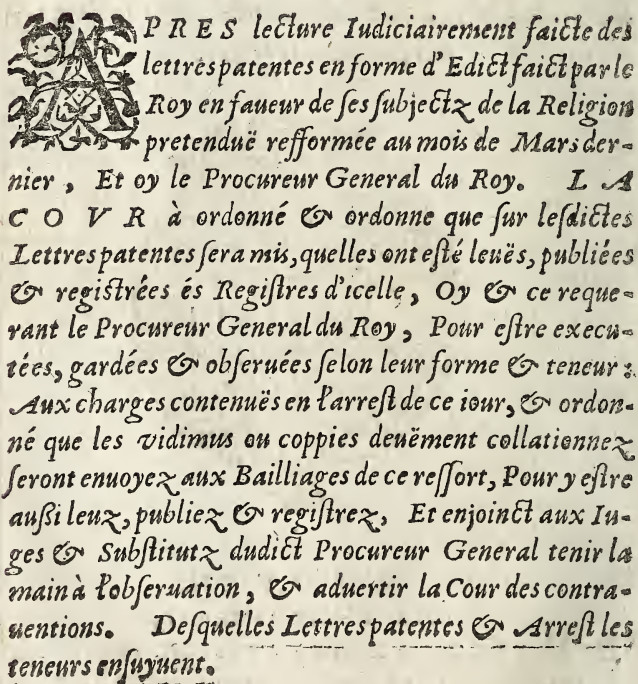 APRES lecture Iudiciairement faicte des
lettres patentes en forme d'Edict faict par le
Roy en faueur de ses subjectz de la Religion
pretenduë refformée au mois de Mars der-
nier, Et oy le Procureur General du Roy. LA
COVR à ordonné & ordonne que sur lesdictes
Lettres patentes sera mis, quelles ont esté leuës, publiées
& registrées és Registres d'icelle, Oy & ce reque-
rant le Procureur General du Roy, Pour estre execu-
tées, gardées & obseruées selon leur forme & teneur :
Aux charges contenuës en l'arrest de ce iour, & ordon-
né que les vidimus ou coppies deuëment collationnez
seront enuoyez aux Bailliages de ce ressort, Pour y estre
aussi leuz, publiez & registrez, Et enjoinct aux Iu-
ges & Substitutz dudict Procureur General tenir la
main à l'obseruation, & aduertir la Cour des contra-
uentions. Desquelles Lettres patentes & Arrest les
teneurs ensuyuent.